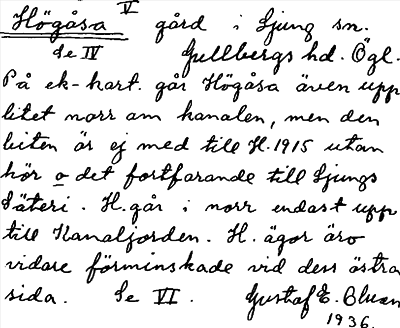 Högåsa V gård i Ljung sn.
Se IV Gullbergs hd. Ögl.
På ek-kart. går Högåsa även upp
litet norr om kanalen, men den
biten är ej med till H. 1915 utan
hör o det fortfarande till Ljungs
Säteri. H. går i norr endast upp
till Kanaljorden. H. ägor äro
vidare förminskade vid dess östra
sida. Se VI. Gustaf E. 
1936.